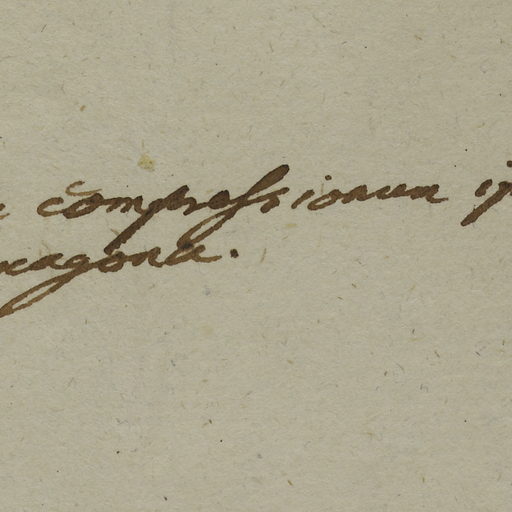 compressionem
xagona.